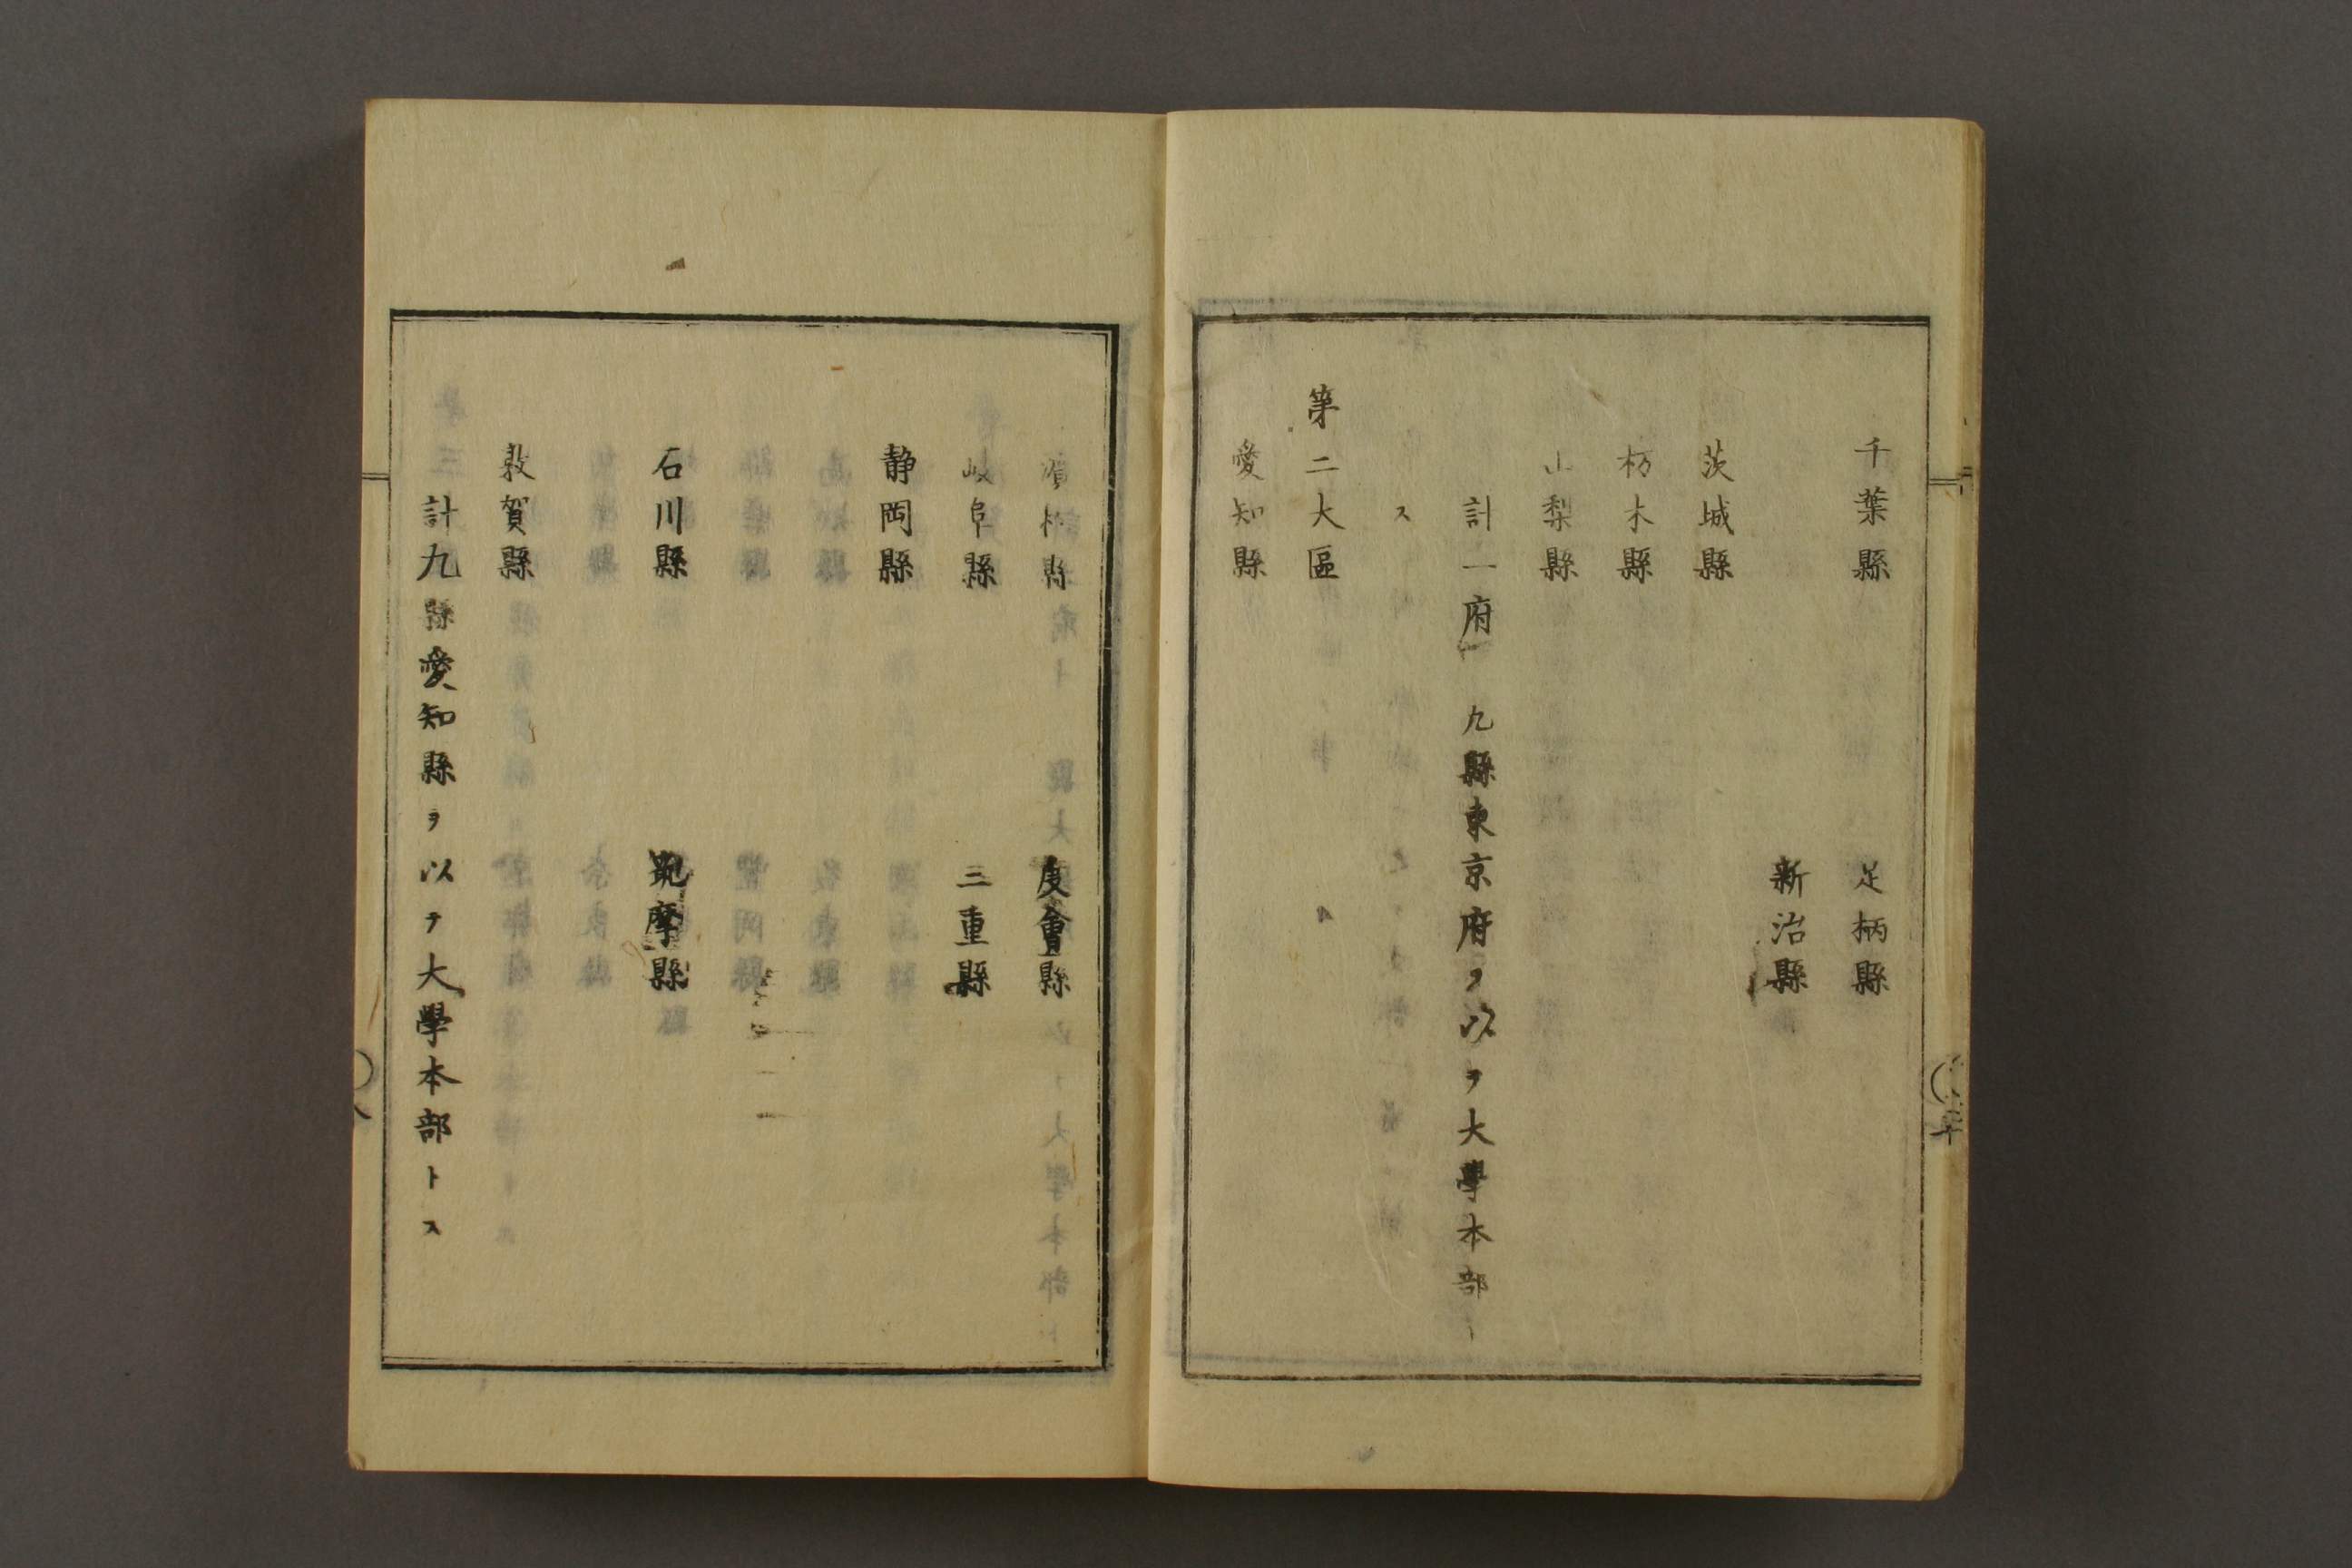 千葉縣　足柄縣
新治縣
茨城縣
栃木縣
山梨縣
計一府　九縣東京府ヲ以テ大學本部
ス
第二大區
愛知縣
濱松縣　度會縣
岐阜縣　三重縣
静岡縣
石川縣　筑摩縣
敦賀縣
計九縣愛知縣ヲ以テ大學本部トス